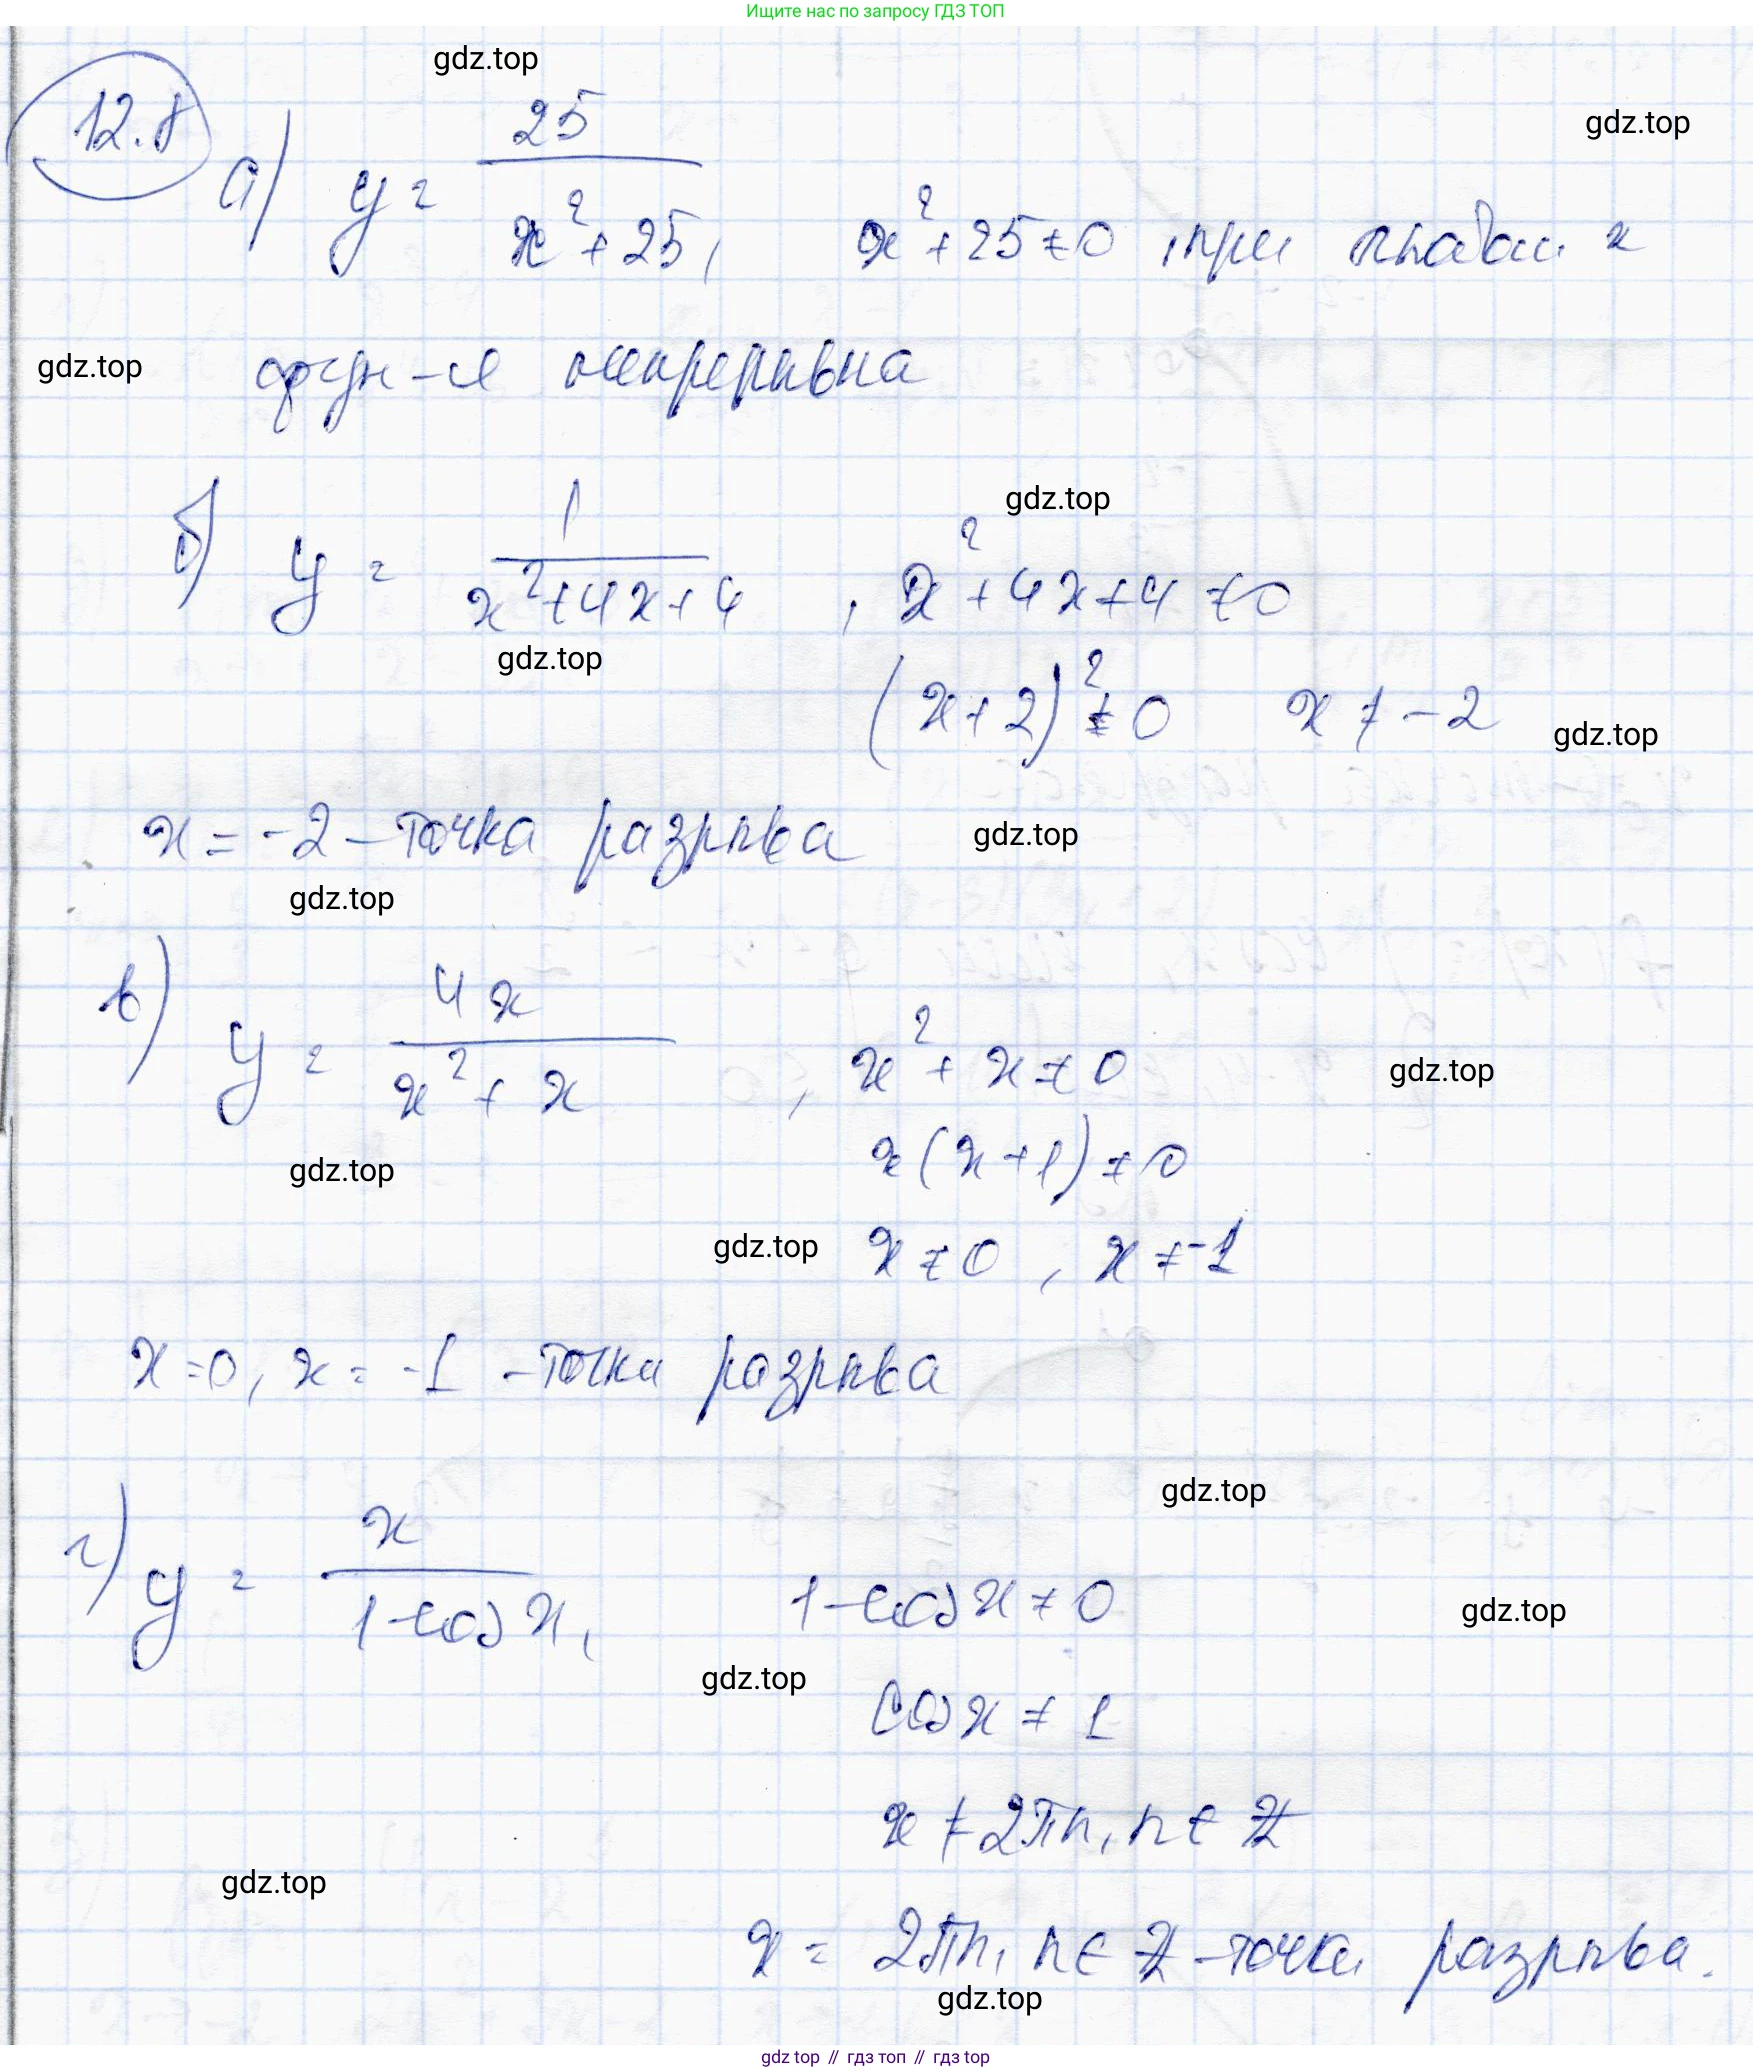 Ищите нас по запросу ГДЗ ТОП
gdz.top
12.8
gdz.top
а) y = 25 / (x² + 25), x² + 25 ≠ 0, при любом x
gdz.top
фун-я непрерывна
gdz.top
б) y = 1 / (x² + 4x + 4), x² + 4x + 4 ≠ 0
gdz.top
(x + 2)² ≠ 0 x ≠ -2
gdz.top
x = -2 – точка разрыва
gdz.top
gdz.top
в) y = 4x / (x² + x), x² + x ≠ 0
gdz.top
x(x + 1) ≠ 0
gdz.top
gdz.top
x ≠ 0, x ≠ -1
x = 0, x = -1 – точки разрыва
gdz.top
г) y = x / (1 - cos x), 1 - cos x ≠ 0
gdz.top
gdz.top
cos x ≠ 1
x ≠ 2πn, n ∈ Z
gdz.top
x = 2πn, n ∈ Z – точки разрыва.
gdz.top
gdz top // гдз топ // gdz top